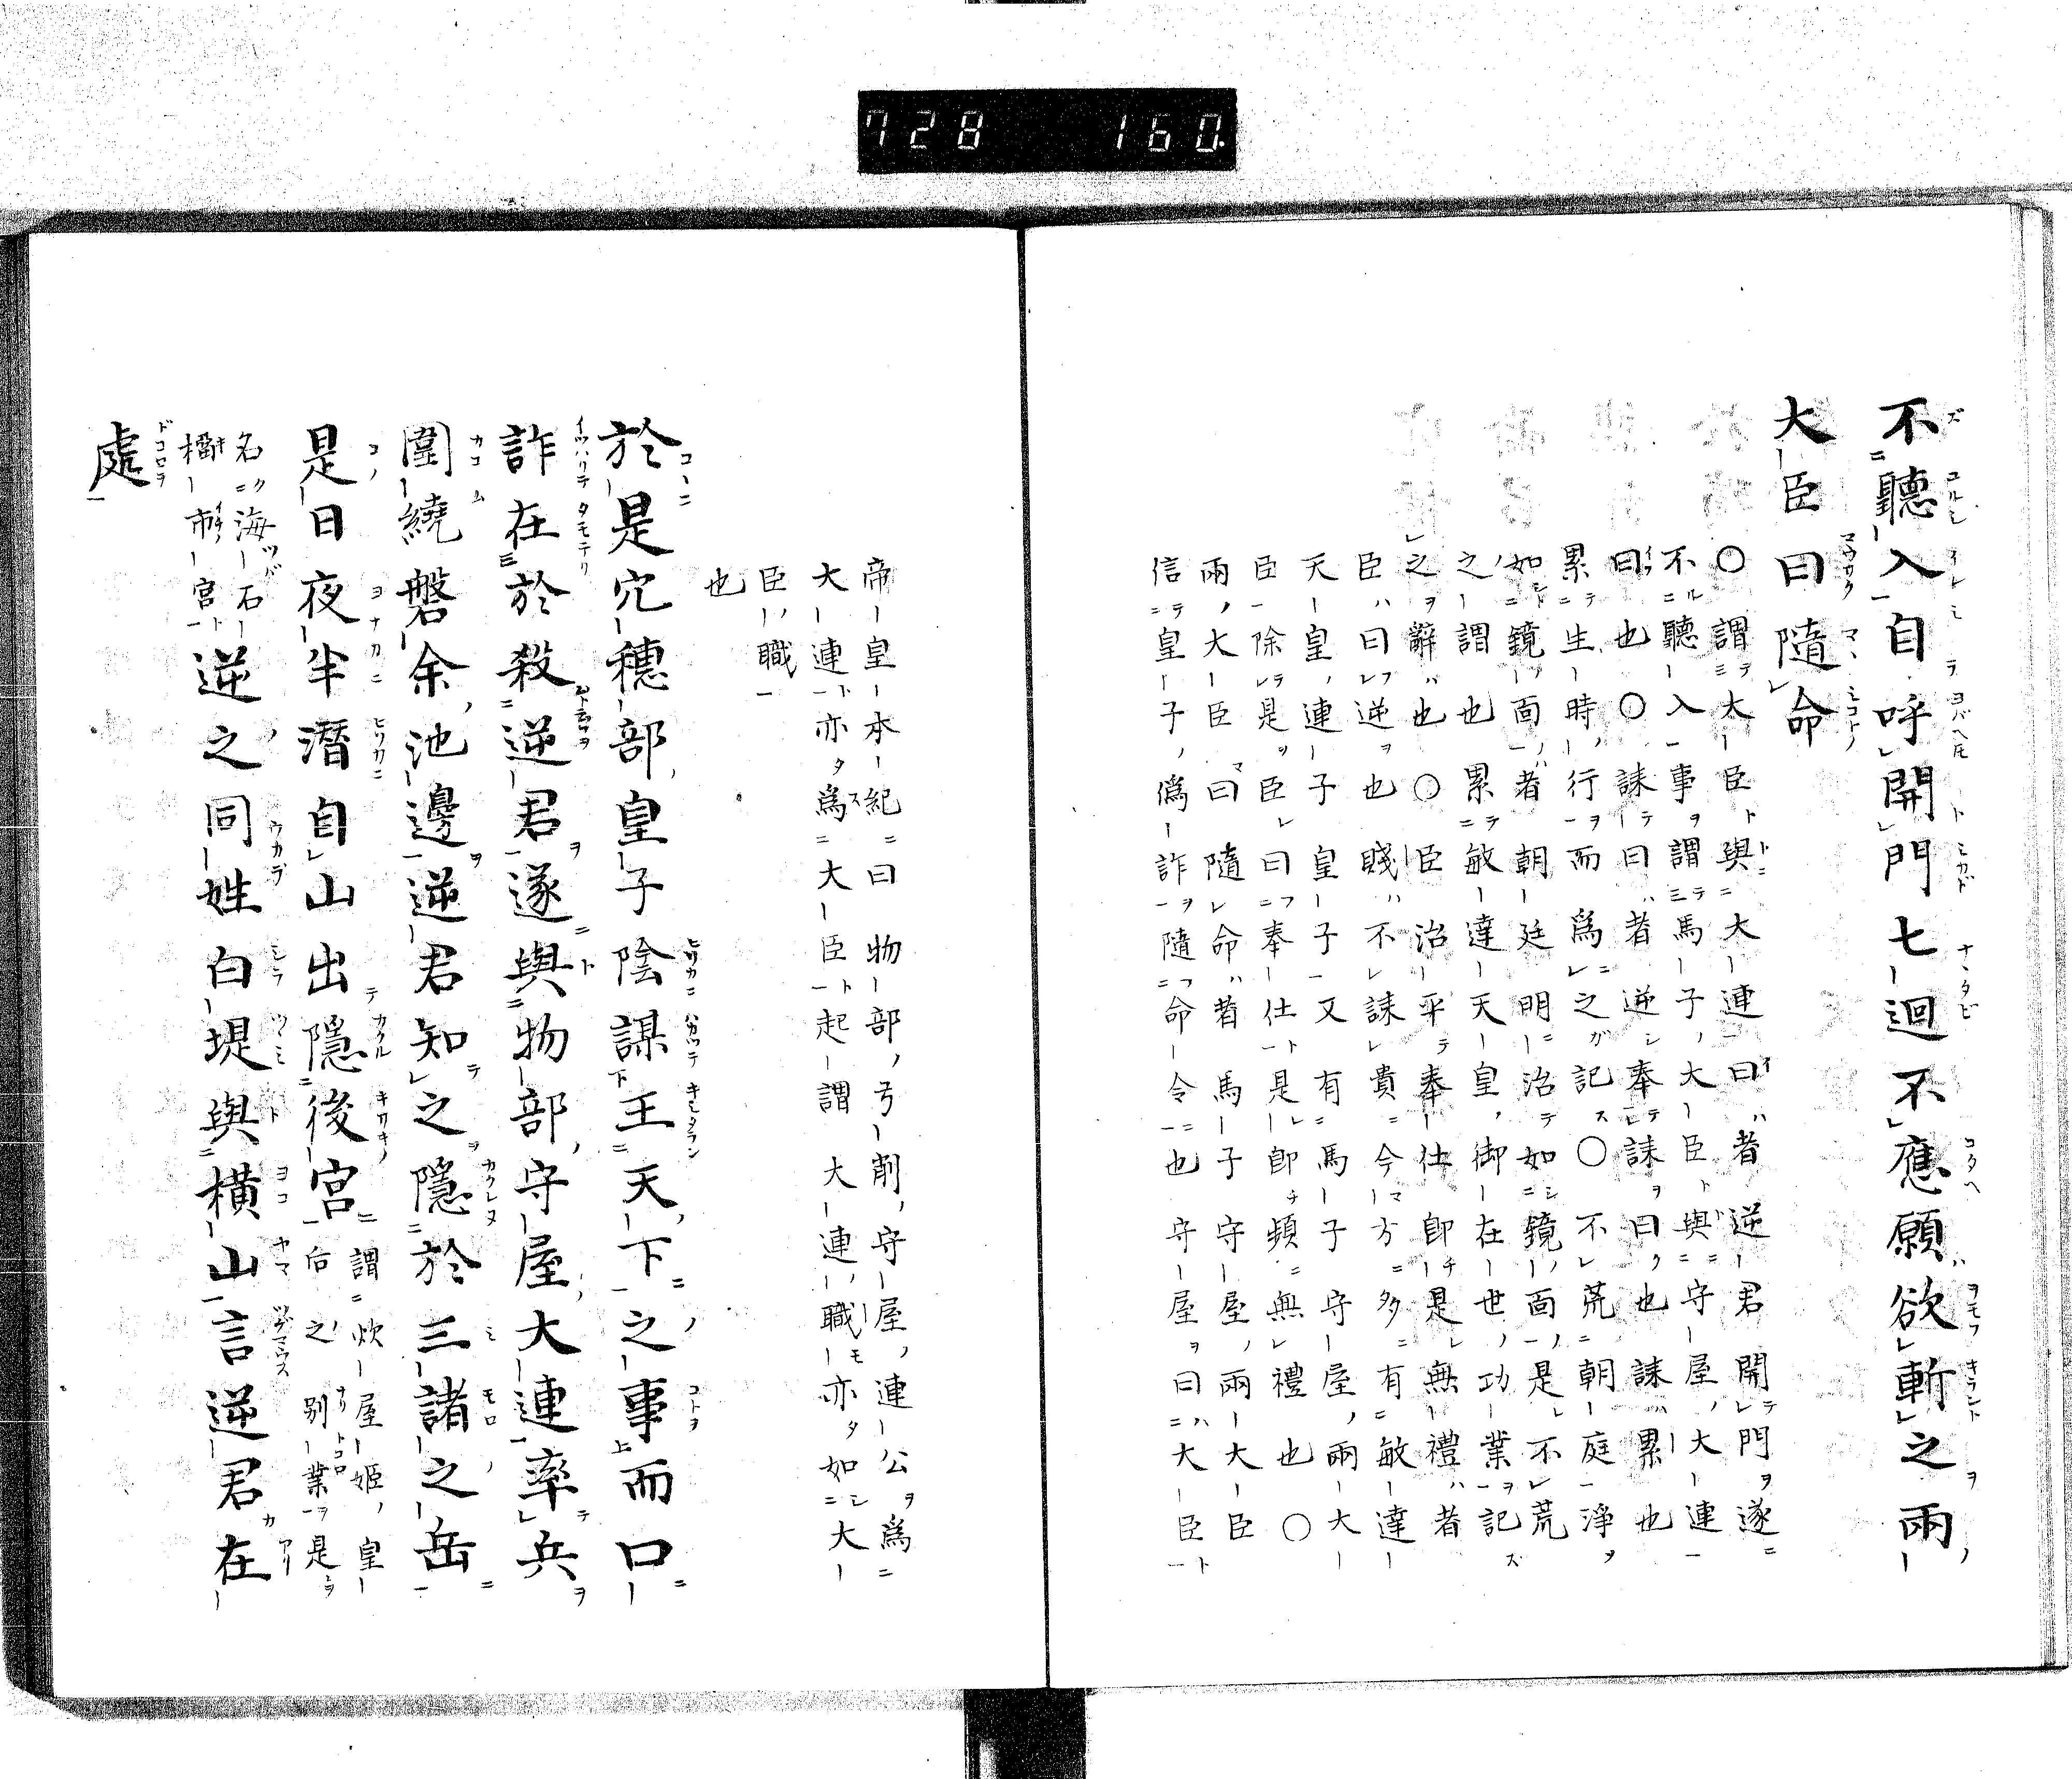 728 160.
不聽入自呼開門七迴不應願欲斬之兩
大臣曰隨命
〇謂大臣與大連曰者逆君開門遂
不聽入事謂馬子大臣與守屋大連
曰也〇誄曰者逆奉誄曰也誄累也
累生時行而爲之記〇不荒朝庭淨
如鏡面者朝廷明治如鏡面是不荒
之謂也累敏達天皇御在世功業記
之辭也〇臣治平奉仕卽是無禮者
臣曰逆也賤不誄貴今方多有敏達
天皇連子皇子又有馬子守屋兩大
臣除是臣曰奉仕是卽頻無禮也〇
兩大臣曰隨命者馬子守屋兩大臣
信皇子僞詐隨命令也守屋曰大臣
帝皇本紀曰物部弓削守屋連公爲
大連亦爲大臣起謂大連職亦如大
臣職
也
於是穴穗部皇子陰謀王天下之事而口
詐在於殺逆君遂與物部守屋大連率兵
圍繞磐余池邊逆君知之隱於三諸之岳
是日夜半潛自山出隱後宮謂炊屋姬皇
后之別業是
名海石
榴市宮逆之同姓白堤與橫山言逆君在
處